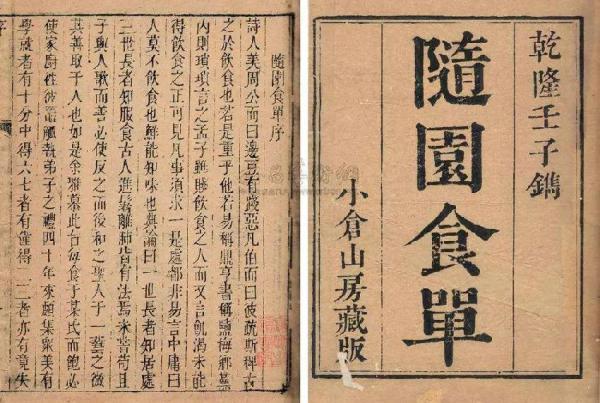 乾隆壬子鐫
隨園食單
小倉山房藏版
隨園食單序
詩人美周公而曰邊豆有踐惡凡伯而曰彼疏斯稗古
之於飲食也若是重乎他若易稱鼎亨書稱鹽梅鄉黨
內則瑣瑣言之孟子雖賤飲食之人而又言飢渴未能
得飲食之正可見凡事須求一是處都非易言中庸曰
人莫不飲食也鮮能知味也典論曰一世長者知居處
三世長者知服食古人進鬐離肺皆有法焉未嘗苟且
子與人歌而善必使反之而後和之聖人于一藝之微
其善取于人也如是余雅慕此旨每食于某氏而飽必
使家廚往彼竈觚執弟子之禮四十年來頗集眾美有
學就者有十分中得六七者有僅得一二者亦有竟失